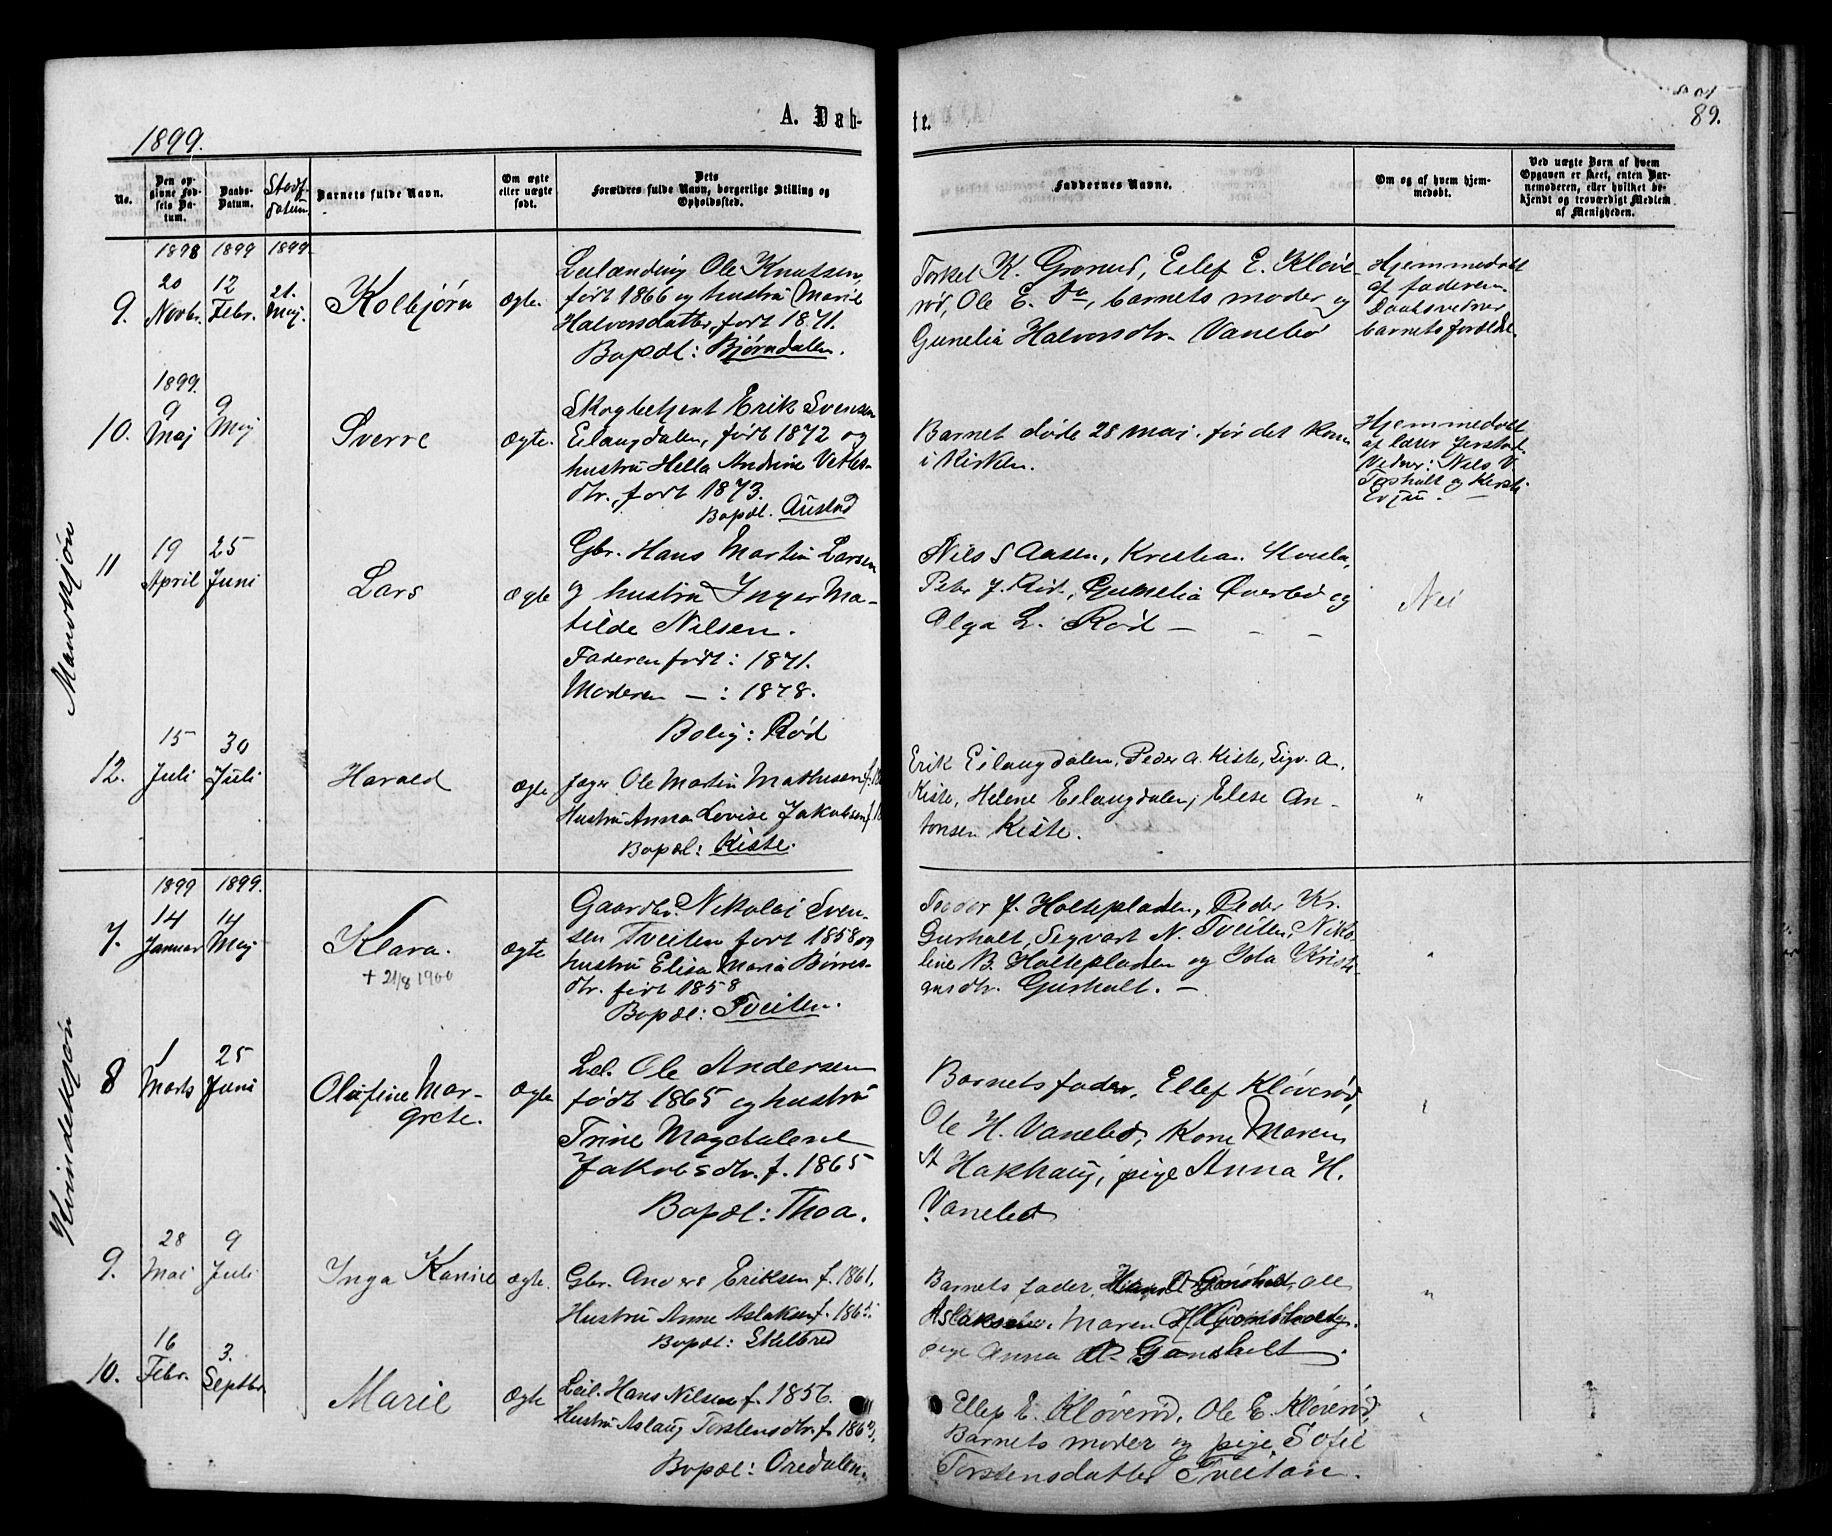 1899.
A. Dab-
te.
89.
No.
Den op-
givne Fød-
sels Da-
tum.
Daabs-
Datum.
Stadf.
datum
Barnets fulde Navn.
Om ægte
eller uægte
født.
Dets
Forældres fulde Navn, borgerlige Stilling og
Opholdssted.
Faddernes Navne.
Om og af hvem hjem-
medøbt.
Ved uægte Børn af hvem
Opgaven er skeet, enten Bar-
nemoderen, eller hvilket be-
kjendt og troværdigt Medlem
af Menigheden.
Mandkjøn
1898 1899 1899
9. 20 Novbr. 12 Febr. 21. Maj. Kolbjørn ægte.
Leilænding Ole Knutsen,
født 1866 og hustru Marie
Halvorsdatter, født 1871.
Bopæl: Bjørndalen.
Torkel K. Grorud, Eilef E. Kløve-
rød, Ole E. do, barnets moder og
Gunelia Halvorsdtr. Vanebo
Hjemmedøbt
af faderen.
Daabsvidner
barnets foreldre.
1899.
10. 9 Maj 9 Maj Sverre ægte.
Skogbetjent Erik Svensen
Eilaugdalen, født 1872 og
hustru Hella Andrine Vetles-
dtr., født 1873.
Bopæl. Austad
Barnet døde 28 mai. før det kom
i Kirken.
Hjemmedøbt
af lærer Jerstad.
Vidner: Nils V.
Torsholt og Kirsti
11 19 April 25 Juni Lars ægte
Gbr. Hans Martin Larsen
og hustru Inger Ma-
tilde Nilsen.
Faderen født: 1871.
Moderen — : 1878.
Bolig: Rød
Nils S Aasen, Kristian
Peter J. Rød, Gunelia Øverbø og
Olga L. Rød — - -
Nei
12. 15 Juli 30 Juli Harald ægte
Jæger Ole Martin Mathisen f.
Hustru Anna Lovise Jakobsen f.
Bopæl: Kiste.
Erik Eilaugdalen, Peder A. Kiste, Sigv. A.
Kiste, Helene Eilaugdalen, Elise An-
tonsen Kiste.
"
Kvindekjøn
1899 1899.
7. 14 Januar 14 Maj Klara. ægte
+ 21/8 1900
Gaardbr. Nikolai Sven-
sen Tveiten født 1858 og
hustru Elisa Maria Børres-
dtr. født 1858
Bopæl: Tveiten.
Teodor J. Holtepladen, Peder Kr.
Gusholt, Segvart N. Tveiten, Niko-
line B. Holtepladen og Ida Kristi-
ansdtr. Gusholt. —
"
8 1 Marts 25 Juni Olufine Mar-
grete. ægte
Leil. Ole Andersen
født 1865 og hustru
Trine Magdalene
Jakobsdtr. f. 1865
Bopæl: Thoa.
Barnets fader, Ellef Kløverød,
Ole H. Vanebo, Kone Maren
St Hakhaug, pige Anna H.
Vanebo
"
9. 28 Mai 9 Juli Inga Kanine ægte.
Gbr. Anders Eriksen f. 1861.
Hustru Anne Aslaksen f. 186
Bopæl: Skilbred
Barnets fader, Hans Gonsholt, Ole
Aslaksen, Maren H. Gonsholt,
pige Anna A. Gonsholt.
"
10. 16 Febr. 3. Septbr. Marie ægte
Leil. Hans Nilsen f. 1856.
Hustru Aslaug Torstensdtr. f. 1863.
Bopæl: Oredalen.
Ellef E. Kløverød, Ole E. Kløverød,
Barnets moder og pige Sofie
Torstensdatter Tveitan.
"